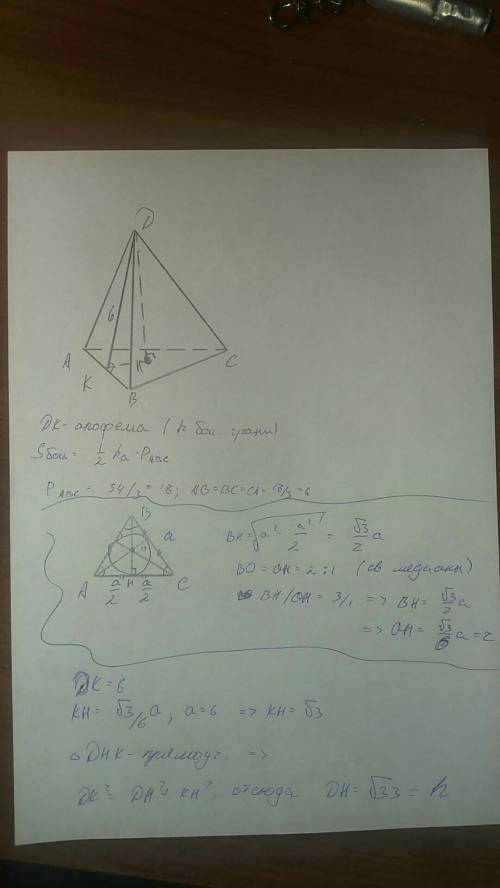 D
6
A
K
H
B
C
DK - апофема (h бок. грани)
Sбок = 1/2 ha · PABC
PABC = 54/3 = 18; AB=BC=CA= 18/3 = 6
B
a
O
A
H
C
a/2 a/2
BH = √(a² - a²/2) = √3/2 a
BO = OH = 2:1 (св медианы)
BH/OH = 3/1 => BH = √3/2 a
=> OH = √3/6 a = r
DK = 6
KH = √3/6 a, a=6 => KH = √3
△DHK - прямоуг. =>
DK² = DH² + KH², отсюда DH = √33 = h